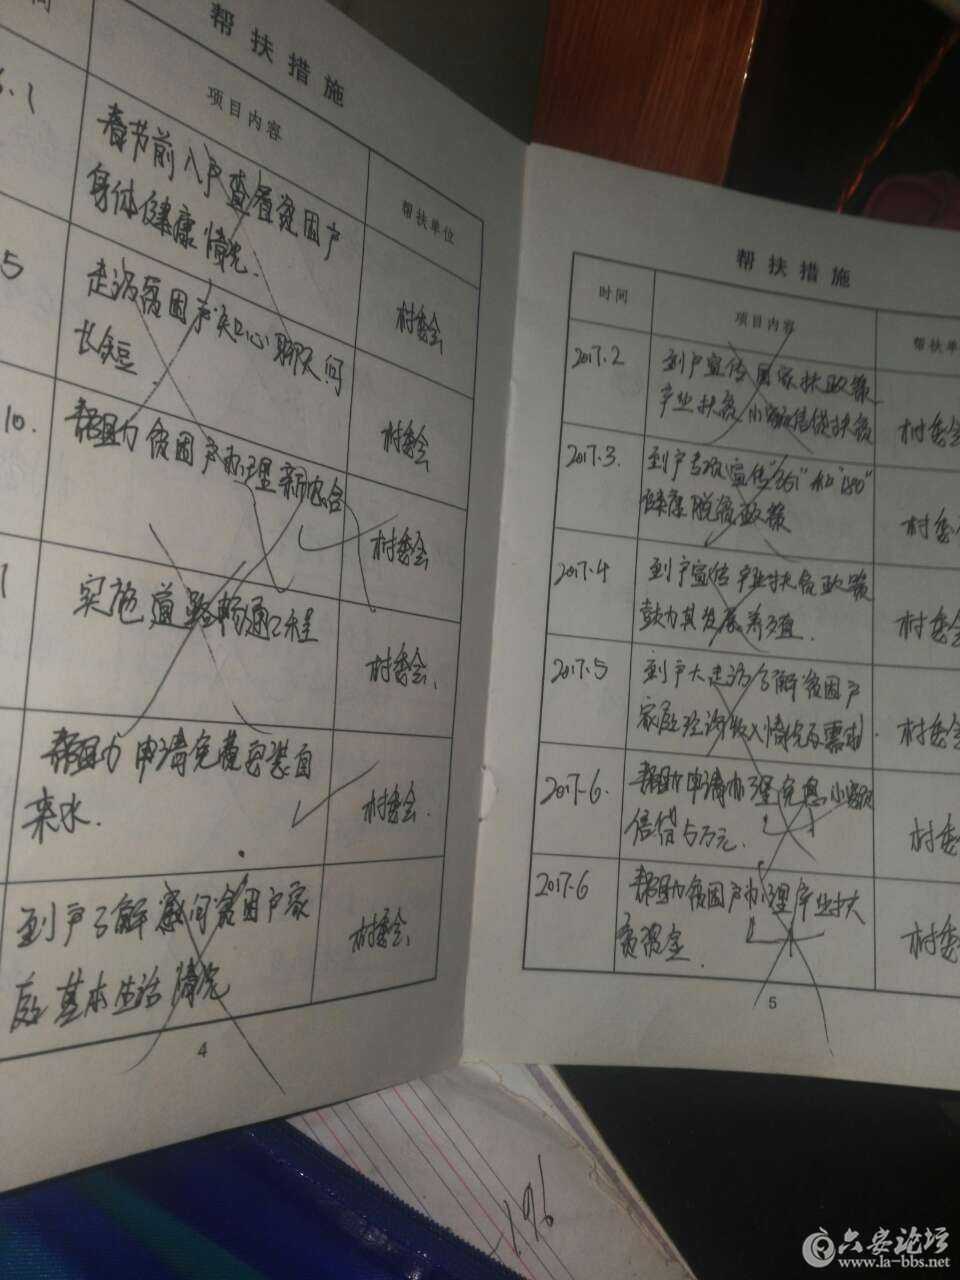 间
帮扶措施
项目内容
帮扶单位
6.1
春节前入户查看贫困户
身体健康情况.
村委会
5
走访贫困户“知心”聊天问
长短.
村委会
10.
帮助贫困户办理新农合
村委会
实施道路畅通工程
村委会.
帮助申请免费安装自
来水.
村委会.
到户了解慰问贫困户家
庭基本生活情况
村委会.
4
帮扶措施
时间
项目内容
帮扶单
2017.2
到户宣传国家扶政策
产业扶贫 小额信贷扶贫
村委会
2017.3.
到户专项宣传“351”和“180”
健康脱贫政策
村委
2017.4
到户宣传产业扶贫政策
鼓励其发展养殖.
村委会
2017.5
到户大走访了解贫困户
家庭经济收入情况及需求.
村委会
2017.6.
帮助申请办理免息小额
信贷5万元.
村委
2017.6
帮助贫困户办理产业扶
贫资金.
村委
5
1.96
六安论坛
www.la-bbs.net